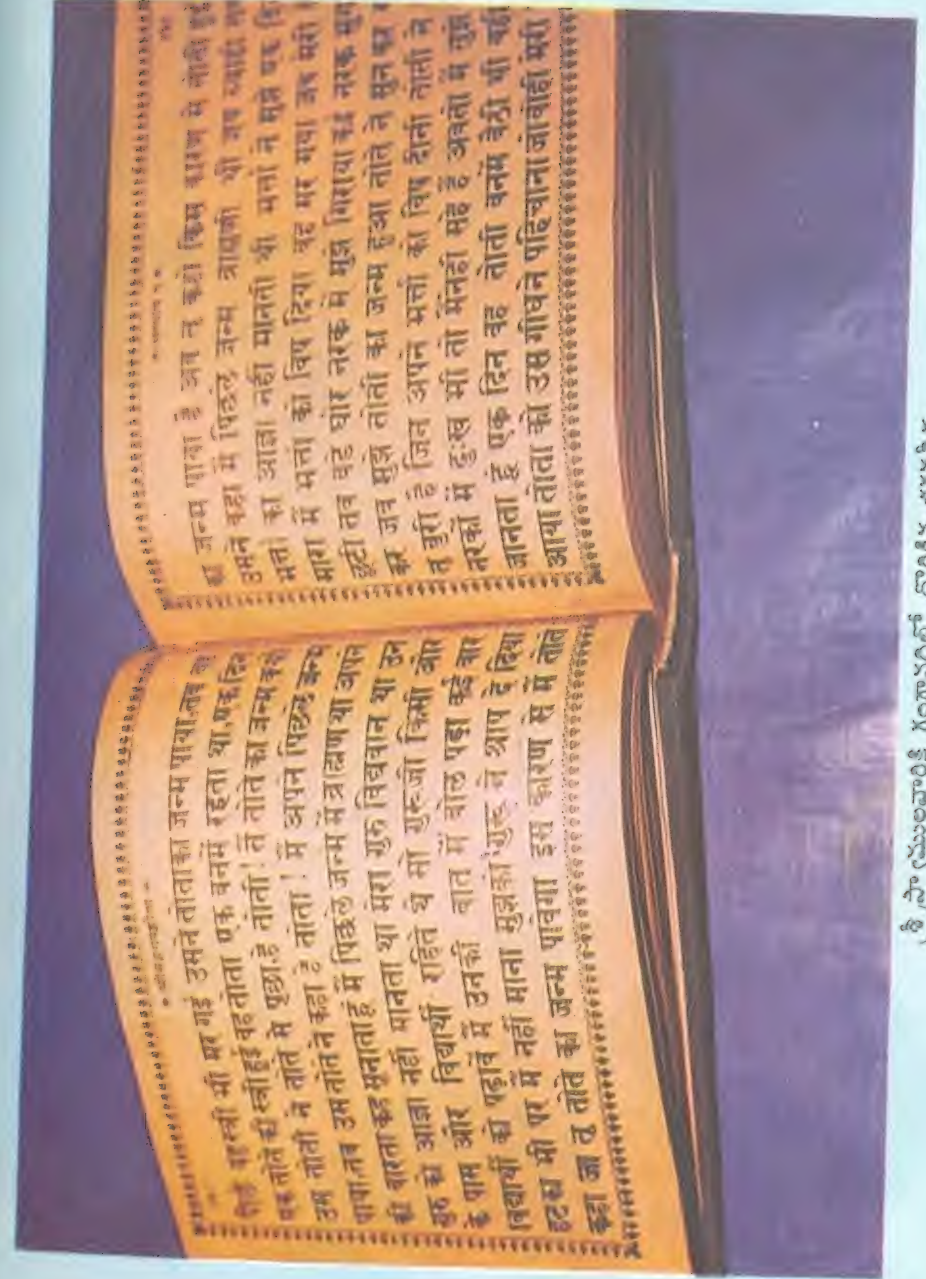 हुई वह स्त्री भी मर गई उसने तोती का जन्म पाया, तब वह
एक तोते की स्त्री हुई वह तोता एक वनमें रहता था, एक दिन
उस तोती ने तोते से पूछा हे तोता ! ते तोते का जन्म कैसे
पाया, तब उस तोते ने कहा हे तोती ! मैं अपने पिछले जन्म
की वारता कह सुनाता हूँ मैं पिछले जन्म में ब्राह्मण था अपने
गुरु की आज्ञा नहीं मानता था मेरा गुरु विद्यवान था उन
के पास और विद्यार्थी रहते थे सो गुरुजी किसी और
विद्यार्थी को पढ़ावें मैं उनकी बात में बोल पड़ा कई बार
हटका भी पर मैं नहीं माना मुझको गुरु ने श्राप दे दिया
कहा जा तू तोते का जन्म पावेगा इस कारण से मैं तोते
का जन्म पाया है अब तू कहा किस कारण से तोती हुई
उसने कहा मैं पिछले जन्म ब्राह्मणी थी जब व्याही
भर्ता की आज्ञा नहीं मानती थी भर्ता ने मुझे एक दिन
मारा मैं भर्ता को विष दिया वह मर गया जब मेरी
छुटी तब बड़े घोर नरक में मुझे गिराया कई नरक
कर अब मुझे तोती का जन्म हुआ तोते ने सुन कर
तू बुरी है जिन अपने भर्ता को विष दीना तोती ने
नरकों में दुःख भी तो मैंनेही सहे हैं अबतो मैं तुझे
जानता हूं एक दिन वह तोती वनमें बैठी थी वही
आया तोती को उस गीधने पहिचाना जो वोही मेरी
శ్రీ